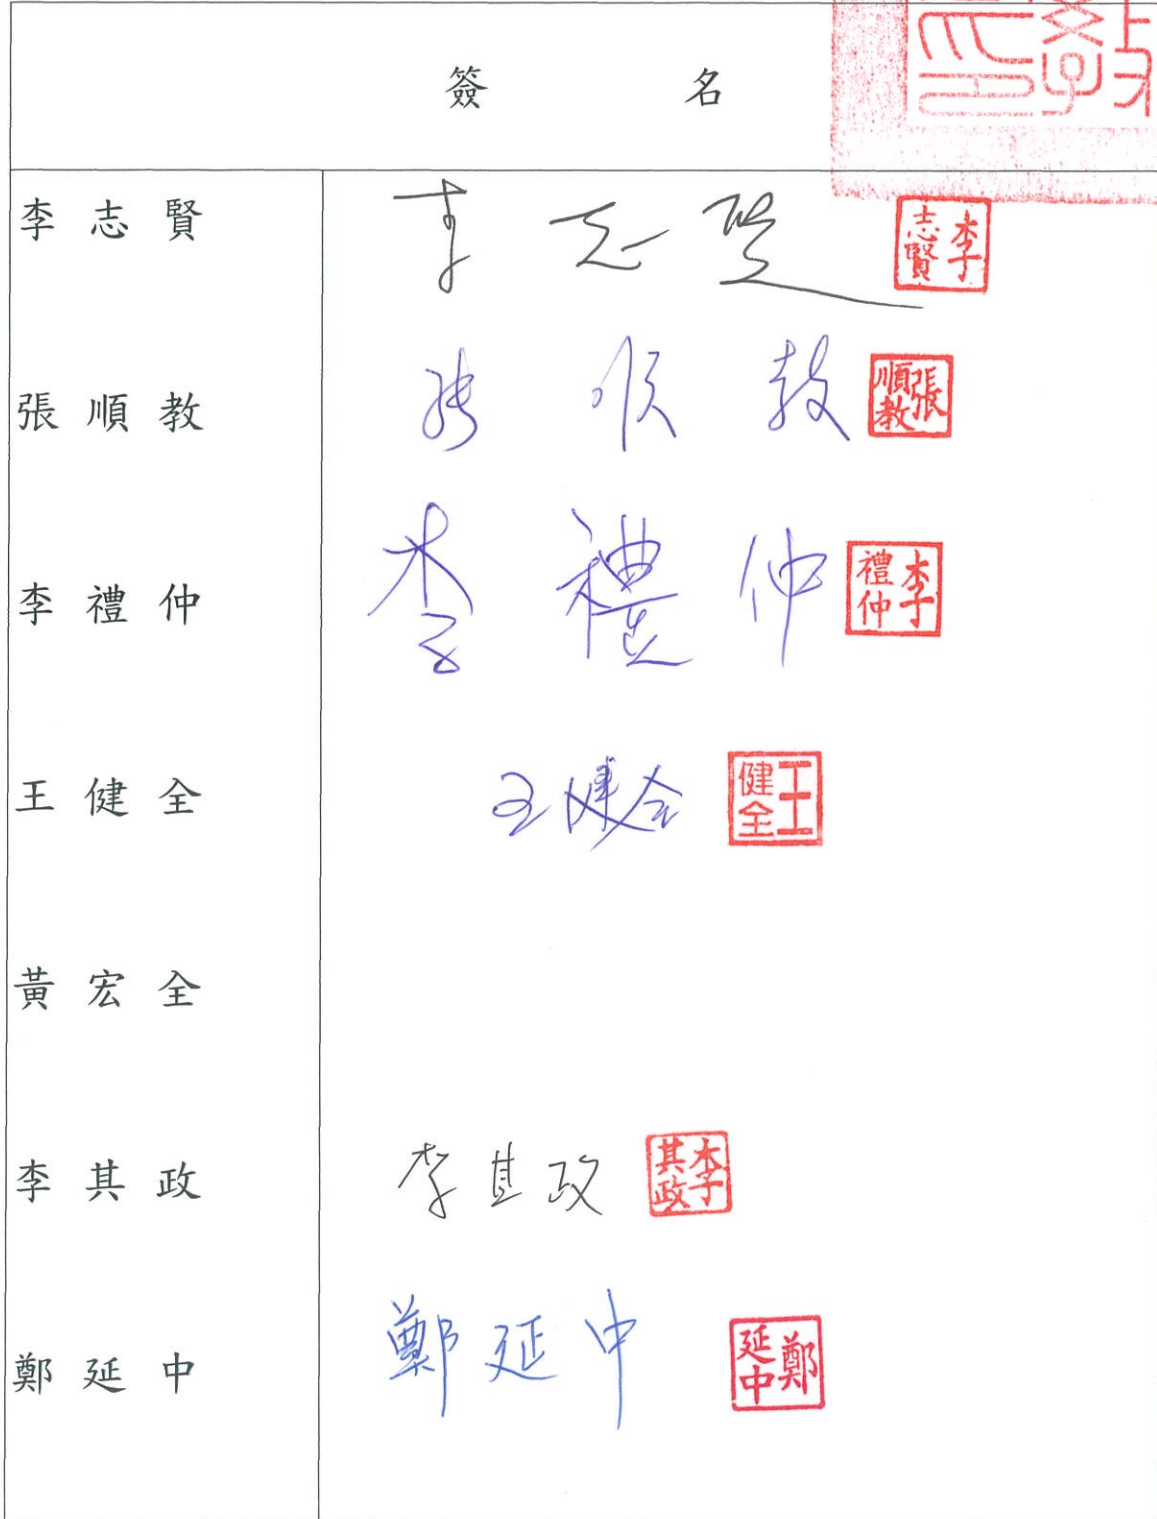 簽 名
李 志 賢 李 志 賢 李志賢
張 順 教 張 順 教 張順教
李 禮 仲 李 禮 仲 李禮仲
王 健 全 王健全 王健全
黃 宏 全
李 其 政 李其政 李其政
鄭 延 中 鄭延中 鄭延中